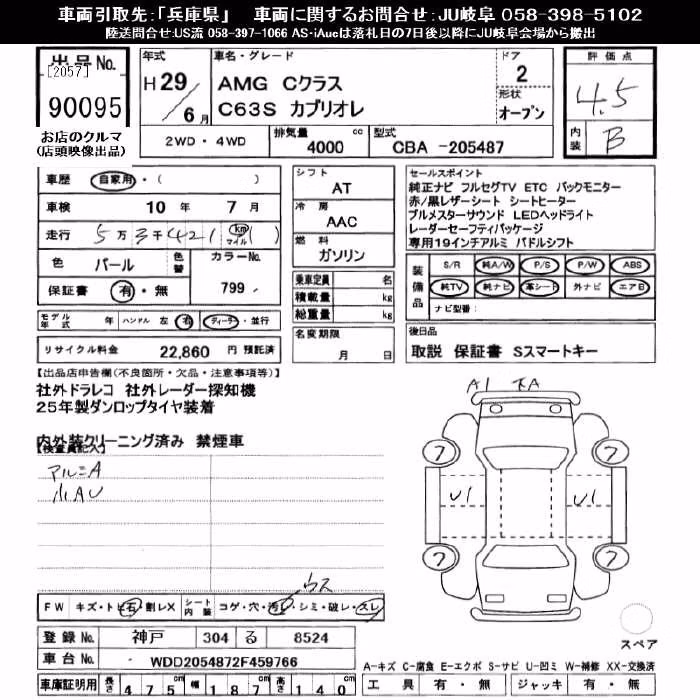 車両引取先:「兵庫県」 車両に関するお問合せ:JU岐阜 058-398-5102
陸送問合せ:US流 058-397-1066 AS-iAucは落札日の7日後以降にJU岐阜会場から搬出
出品No.
[2057]
90095
お店のクルマ
(店頭映像出品)
年式
H29/6月
車名・グレード
AMG Cクラス
C63S カブリオレ
ドア
2
形状
オープン
2WD・4WD
排気量 4000 cc
型式 CBA -205487
評価点
4.5
内装 B
車歴 自家用・( )
車検 10年 7月
走行 5万3千421(km マイル)
色 パール 色替 カラーNo.
保証書 有・無 799
モデル年式 年 ハンドル 左 右 ディーラー・並行
リサイクル料金 22,860 円 預託済
シフト
AT
冷房
AAC
燃料
ガソリン
乗車定員 名
積載量 kg
総重量 kg
名変期限
月 日
セールスポイント
純正ナビ フルセグTV ETC バックモニター
赤/黒レザーシート シートヒーター
ブルメスターサウンド LEDヘッドライト
レーダーセーフティパッケージ
専用19インチアルミ パドルシフト
装備品
S/R 純A/W P/S P/W ABS
純TV 純ナビ 革シート 外ナビ エアB
ナビ型番:
後日品
取説 保証書 Sスマートキー
【出品店申告欄(不良箇所・欠品・注意事項等)】
社外ドラレコ 社外レーダー探知機
25年製ダンロップタイヤ装着
内外装クリーニング済み 禁煙車
【検査員記入】
アルミA
小AU
A1 下A
7 7
U1 U1
7 7
ウス
FW キズ・トビ石・割レX シート内装 コゲ・穴・汚レ・シミ・破レ・スレ
スペア
登録No. 神戸 304 る 8524
車台No. WDD2054872F459766
車庫証明用 長さ 475cm 幅 187cm 高さ 140cm
A-キズ C-腐食 E-エクボ S-サビ U-凹ミ W-補修 XX-交換済
工具 有・無 ジャッキ 有・無